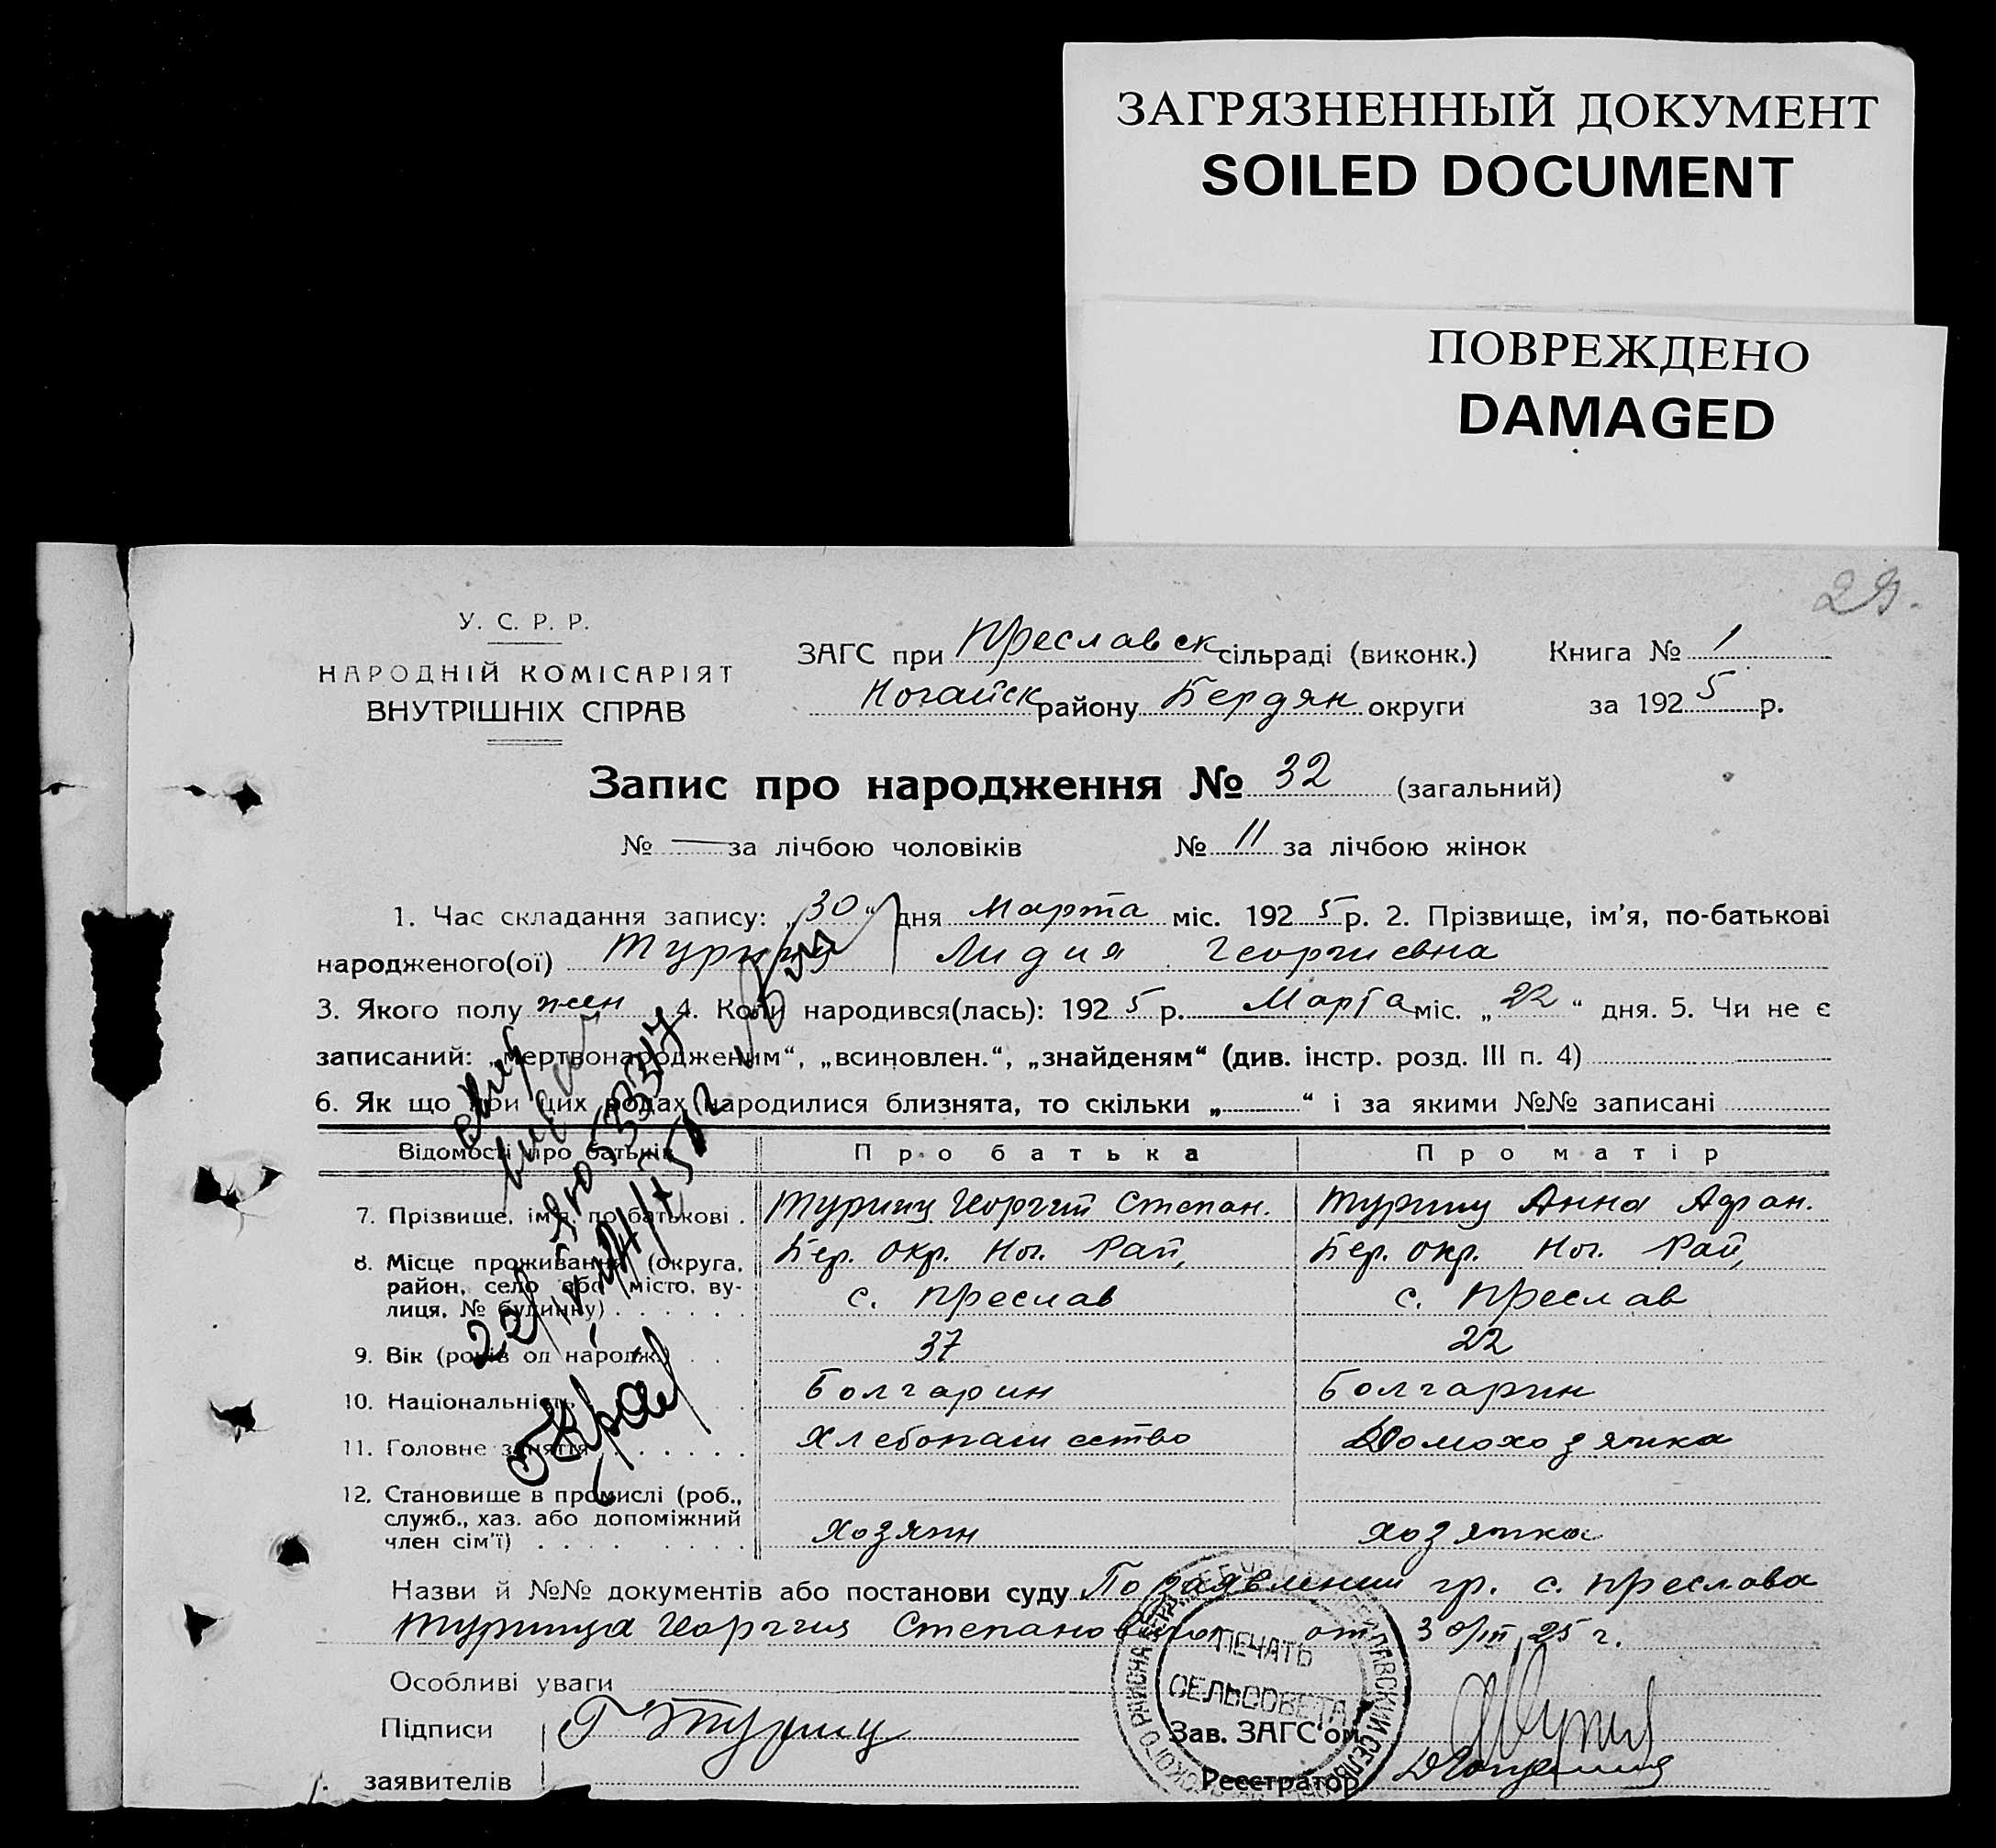 ЗАГРЯЗНЕННЫЙ ДОКУМЕНТ
SOILED DOCUMENT
ПОВРЕЖДЕНО
DAMAGED
29.
У. С. Р. Р.
НАРОДНІЙ КОМІСАРІЯТ
ВНУТРІШНІХ СПРАВ
ЗАГС при Преславск сільраді (виконк.) Книга № 1
Ногайск району Бердян округи за 1925 р.
Запис про народження № 32 (загальний)
№ — за лічбою чоловіків № 11 за лічбою жінок
1. Час складання запису: „30“ дня Марта міс. 1925 р. 2. Прізвище, ім'я, по-батькові
народженого(ої) Турииц Лидия Георгиевна
3. Якого полу жен 4. Коли народився(лась): 1925 р. Марта міс. „22“ дня. 5. Чи не є
записаний: „мертвонародженим“, „всиновлен.“, „знайденям“ (див. інстр. розд. III п. 4)
6. Як що при цих родах народилися близнята, то скільки „ “ і за якими №№ записані
Відомості про батьків Про батька Про матір
7. Прізвище, ім'я, по-батькові . Турииц Георгий Степан. Турииц Анна Адран.
8. Місце проживання (округа, Бер. окр. Ног. Рай, Бер. окр. Ног. Рай,
район, село або місто, ву-
лиця, № будинку) . . . . . с. Преслав с. Преслав
9. Вік (років од народж.) . . 37 22
10. Національність . Болгарин Болгарин
11. Головне заняття . . . . . . Хлебопашество Домохозяйка
12. Становище в промислі (роб.,
служб., хаз. або допоміжний
член сім'ї) . . . . . . . . хозяин хозяйка
Назви й №№ документів або постанови суду По заявлении гр. с. Преслава
Туриица Георгия Степановича от 30/III 25 г.
ПЕЧАТЬ
СЕЛЬСОВЕТА
Особливі уваги
Підписи Г Турииц Зав. ЗАГС'ом
заявителів Реєстратор